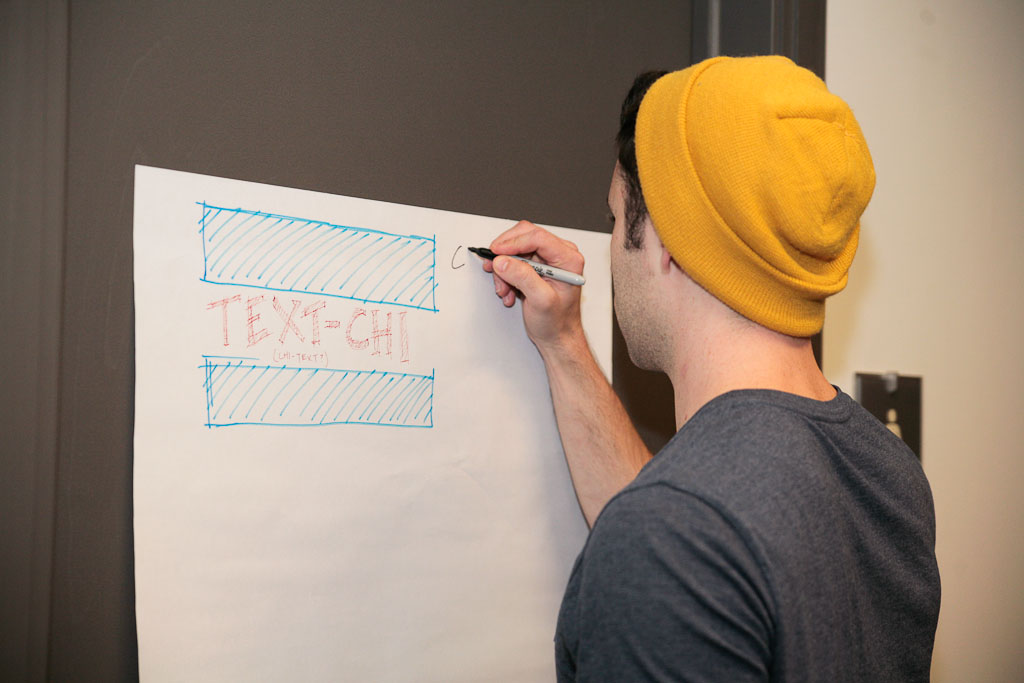 TEXT-CHI
(CHI-TEXT?)
C